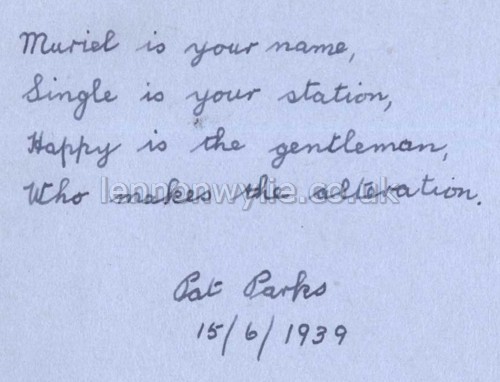 Muriel is your name,
Single is your station,
Happy is the gentleman,
Who makes the alteration.
lennonwylie.co.uk
Pat Parks
15/6/1939